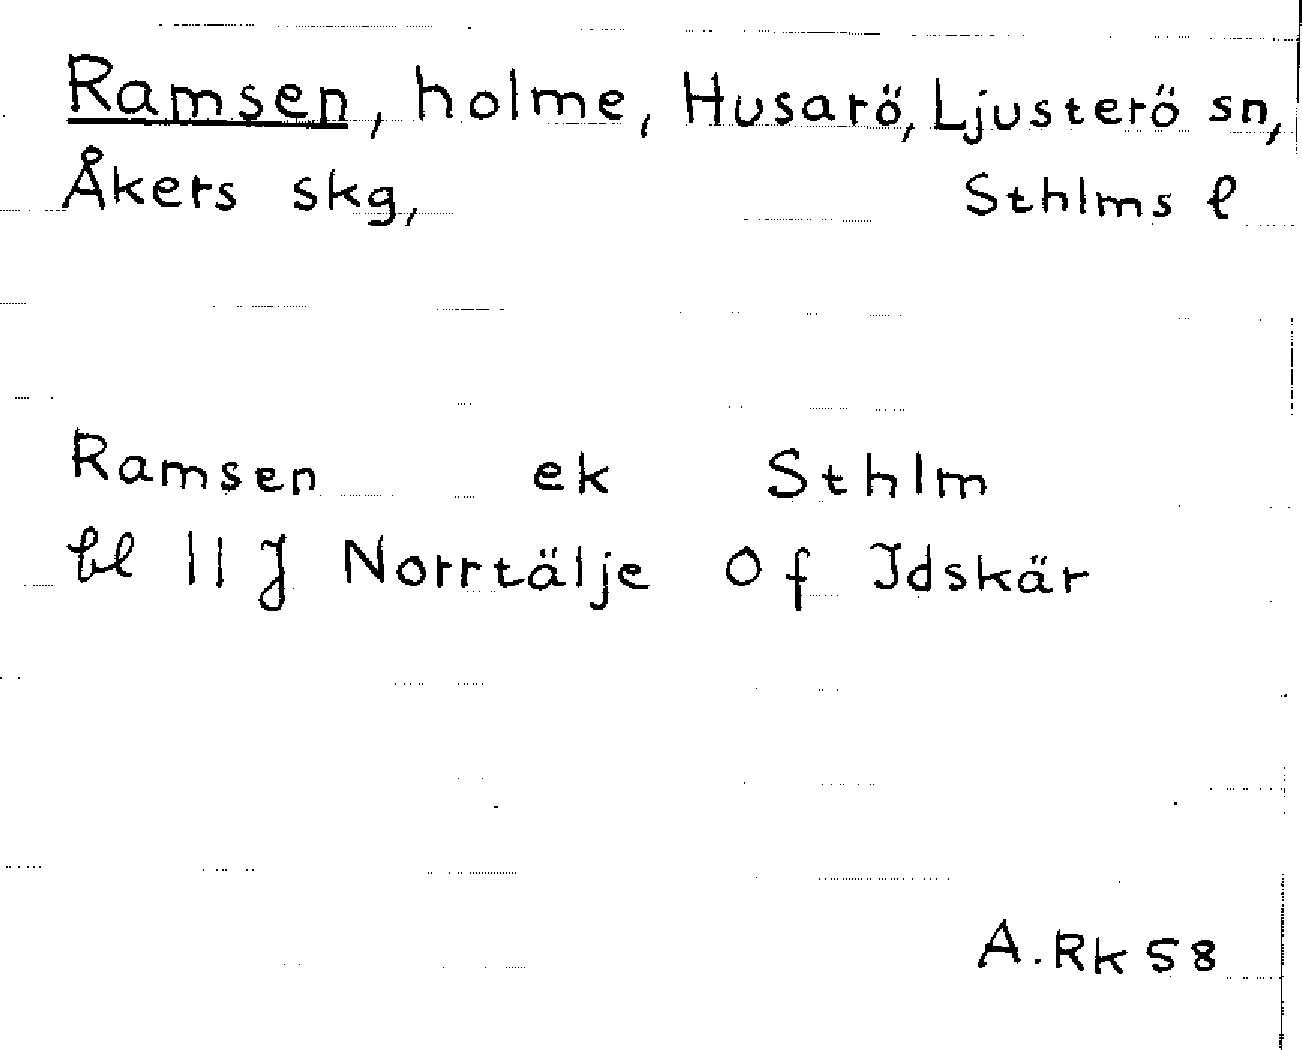 Ramsen, holme, Husarö, Ljusterö sn,
Åkers skg, Sthlms l
Ramsen ek Sthlm
bl 11 J Norrtälje Of Idskär
A.Rk 58